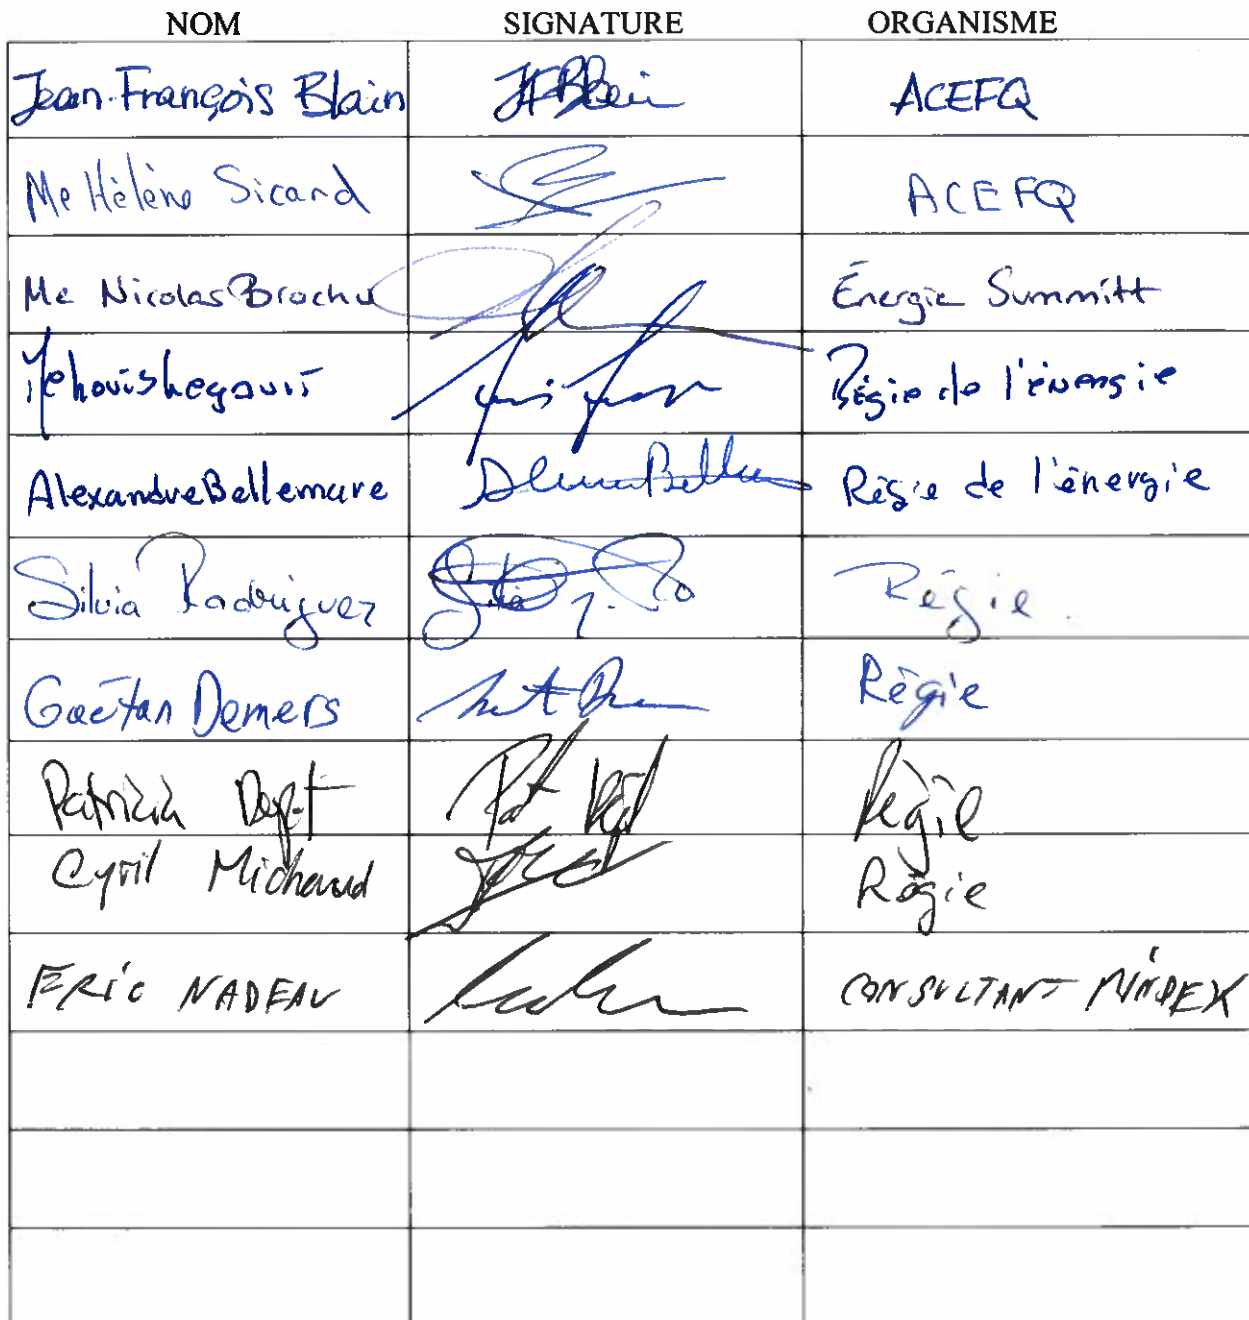 NOM SIGNATURE ORGANISME
Jean-François Blain JFBlain ACEFQ
Me Hélène Sicard ACEFQ
Me Nicolas Brochu Énergie Summitt
Me Louis Legault Régie de l'énergie
Alexandre Bellemare Régie de l'énergie
Silvia Rodriguez Régie.
Gaétan Demers Régie
Patricia Régie
Cyril Michaud Régie
ERIC NADEAU CONSULTANT